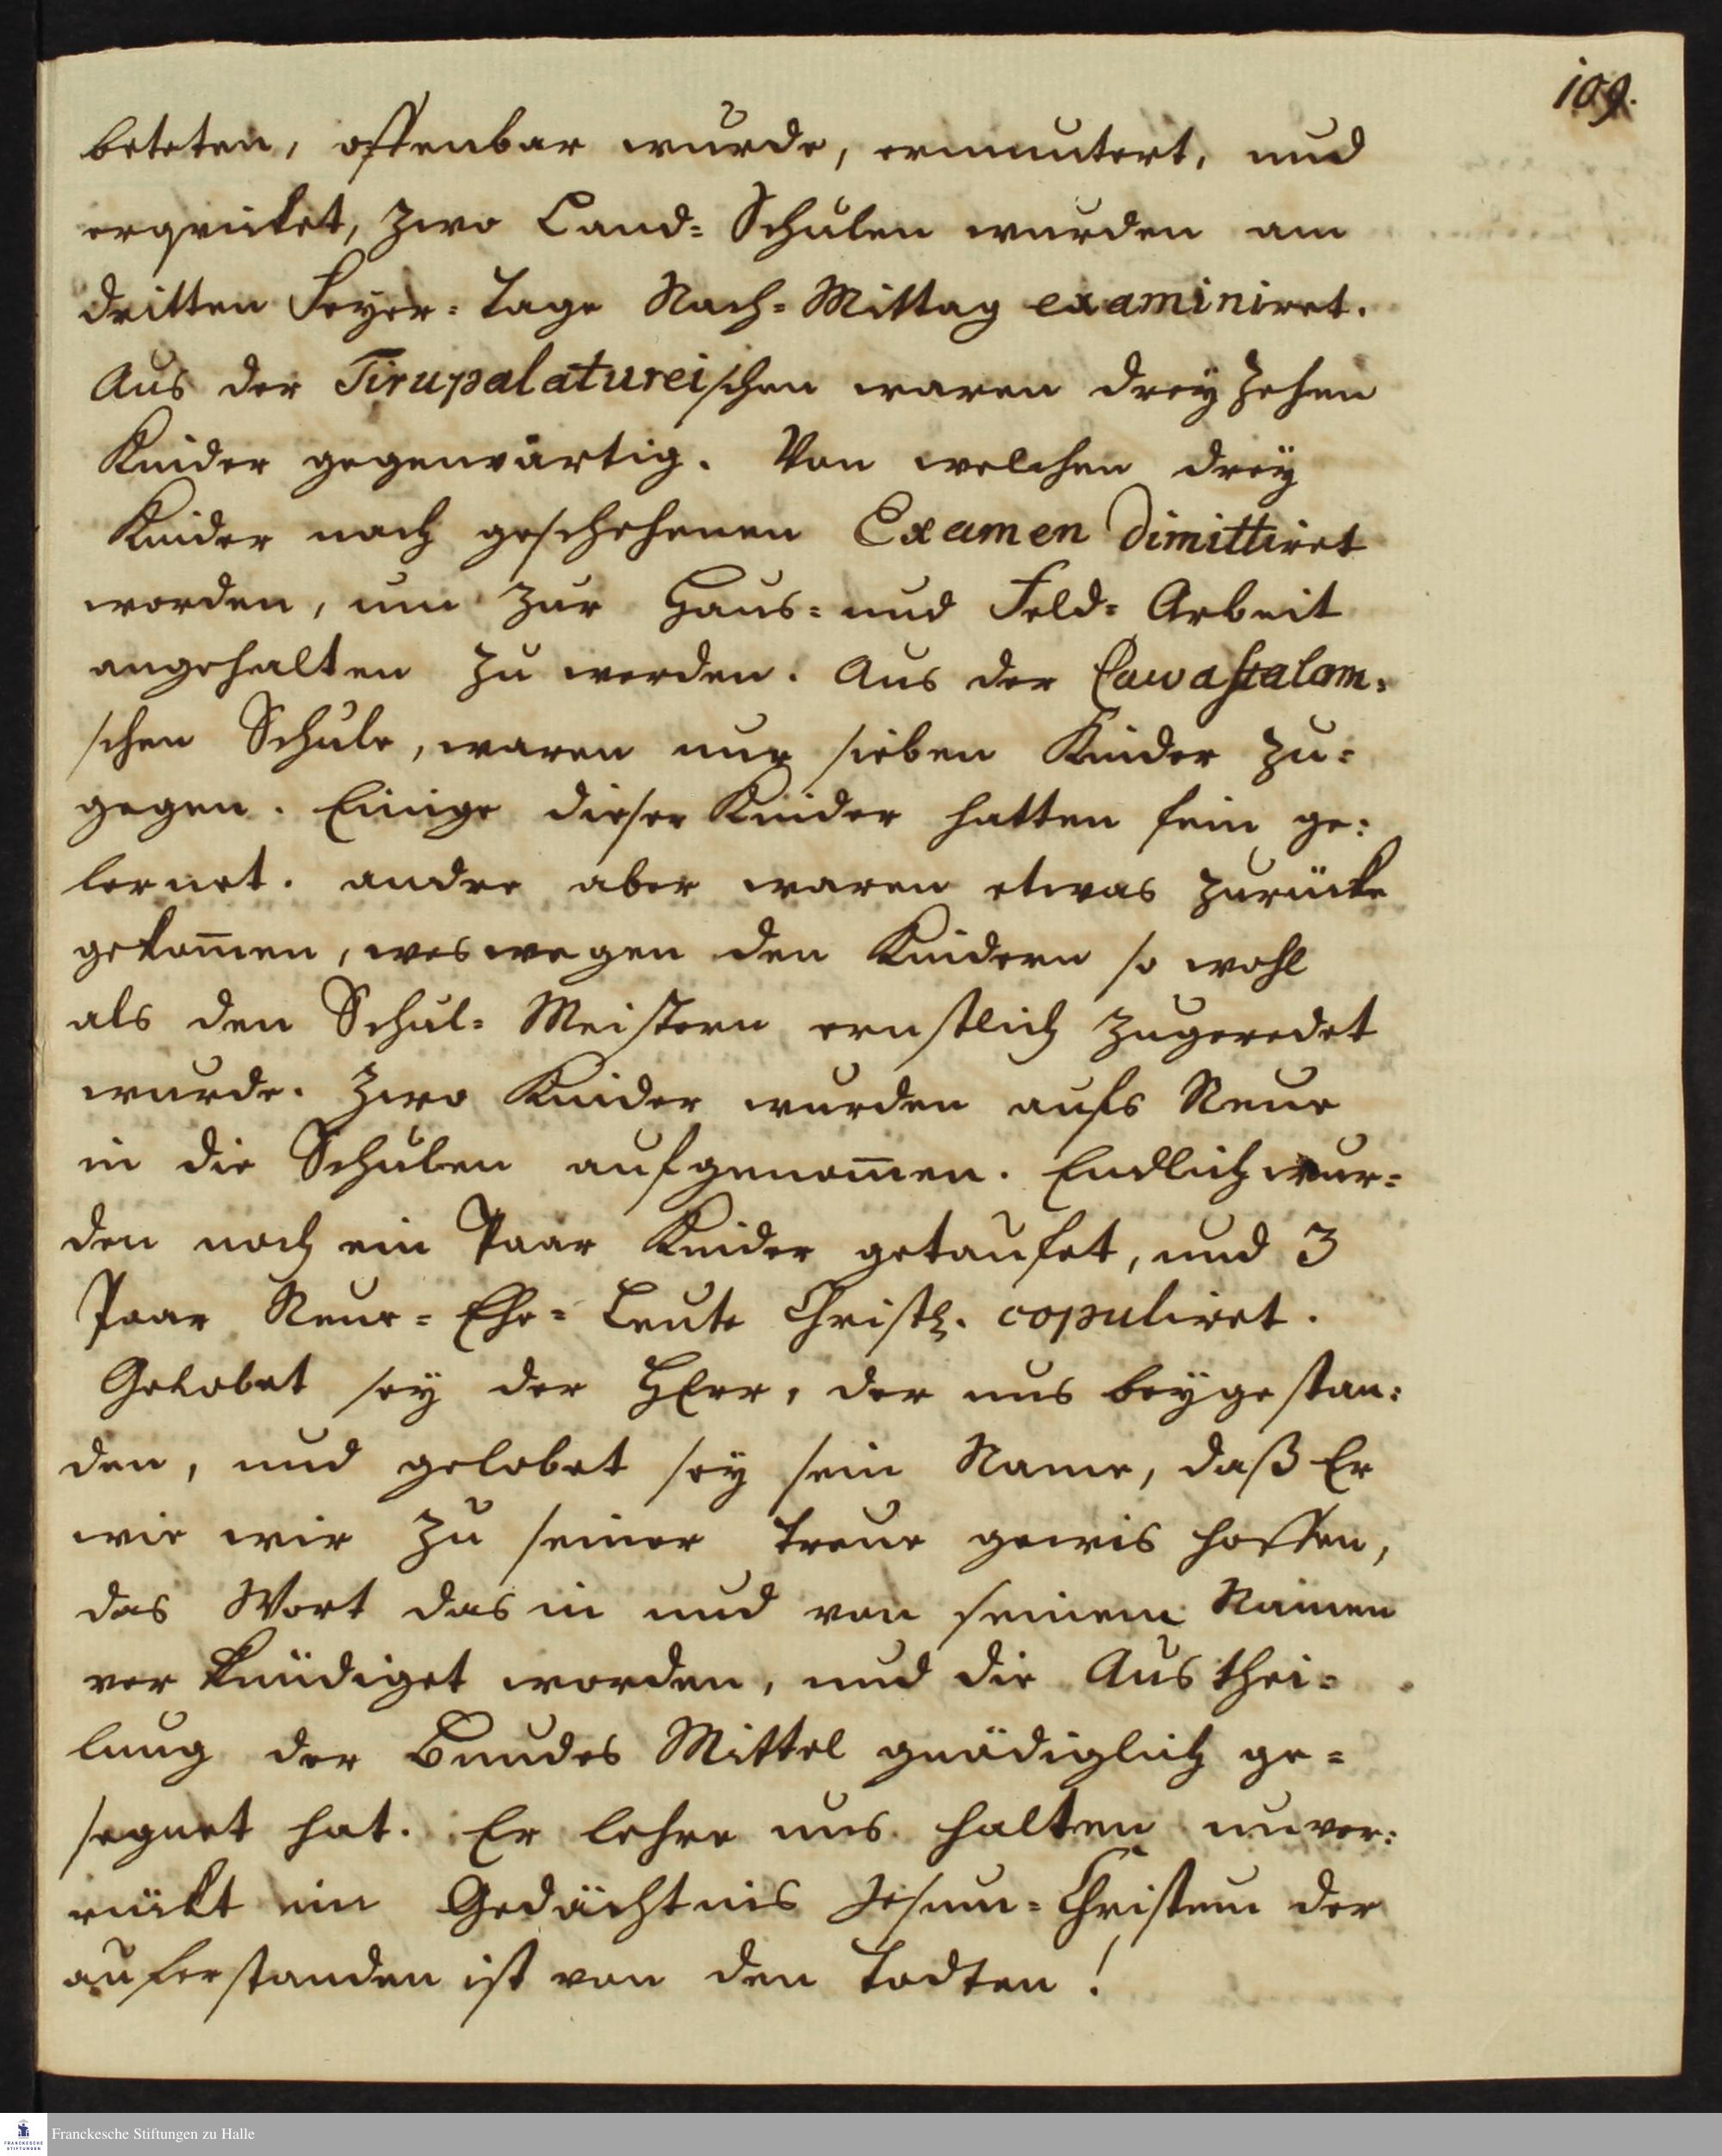 109.
beteten, offenbar wurde, ermuntert, und
erqvicket, zwo Land= Schulen wurden am
dritten Feyer= Tage Nach= Mittag examiniret.
Aus der Tirupalatureischen waren dreyzehen
Kinder gegenwärtig. Von welchen dreÿ
Kinder nach geschehenen Examen dimittiret
worden, um zur Haus= und Feld= Arbeit
angehalten zu werden. Aus der Cawastalam=
schen Schule, waren nur sieben Kinder zu=
gegen. Einige dieser Kinder hatten fein ge=
lernet. andre aber waren etwas zurücke
gekom̄en, weswegen den Kindern so wohl
als den Schul= Meistern ernstlich zugeredet
wurde. Zwo Kinder wurden aufs Neue
in die Schulen aufgenom̄en. Endlich wur=
den noch ein Paar Kinder getaufet, und 3
Paar Neue= Ehe= Leute Christl. copuliret.
Gelobet seÿ der HErr, der uns beÿgestan=
den, und gelobet seÿ sein Name, daß Er
wie wir zu seiner Treue gewis hoffen,
das Wort das in und von seinem Namen
verkündiget worden, und die Austhei=
lung der Bundes Mittel gnädiglich ge=
segnet hat. Er lehre uns halten unver=
rückt im Gedächtnis Jesum= Christum der
auferstanden ist von den Todten!
FRANCKESCHE STIFTUNGEN
Franckesche Stiftungen zu Halle